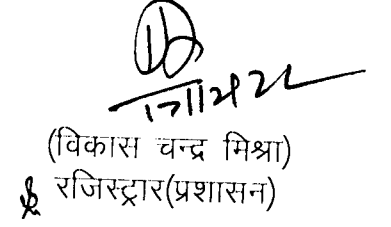 (विकास चन्द्र मिश्रा)
रजिस्ट्रार(प्रशासन)